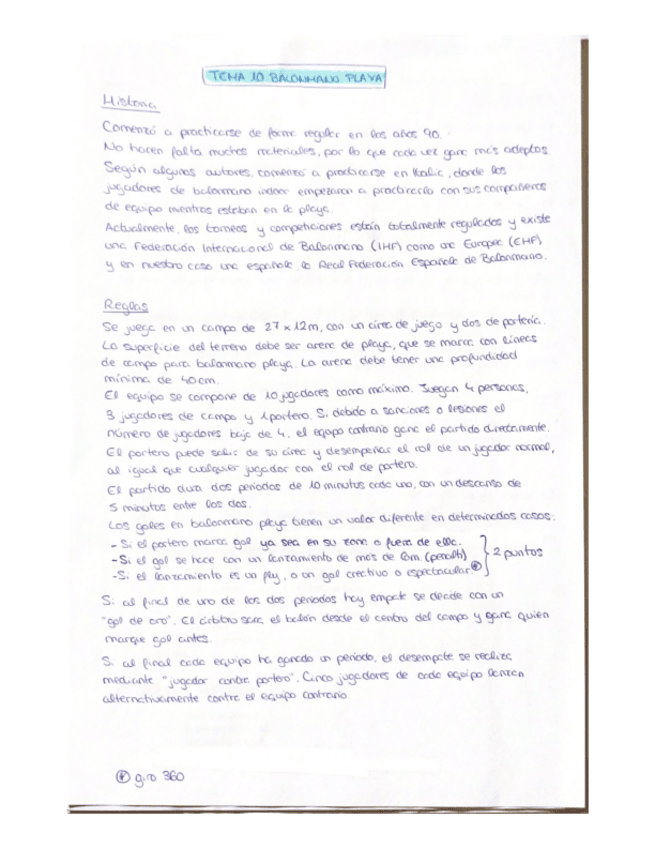 TEMA 10 BALONMANO PLAYA
Historia
Comenzó a practicarse de forma regular en los años 90.
No hacen falta muchos materiales, por lo que cada vez gana más adeptos.
Según algunos autores, comenzó a practicarse en Italia, donde los
jugadores de balonmano indoor empezaron a practicarlo con sus compañeros
de equipo mientras estaban en la playa.
Actualmente, los torneos y competiciones están totalmente regulados y existe
una Federación Internacional de Balonmano (IHF) como una Europea (EHF)
y en nuestro caso una española la Real Federación Española de Balonmano.
Reglas
Se juega en un campo de 27 x 12m, con un área de juego y dos de portería.
La superficie del terreno debe ser arena de playa, que se marca con líneas
de campo para balonmano playa. La arena debe tener una profundidad
mínima de 40cm.
El equipo se compone de 10 jugadores como máximo. Juegan 4 personas,
3 jugadores de campo y 1 portero. Si debido a sanciones o lesiones el
número de jugadores baja de 4, el equipo contrario gana el partido directamente.
El portero puede salir de su área y desempeñar el rol de un jugador normal,
al igual que cualquier jugador con el rol de portero.
El partido dura dos periodos de 10 minutos cada uno, con un descanso de
5 minutos entre los dos.
Los goles en balonmano playa tienen un valor diferente en determinados casos:
- Si el portero marca gol ya sea en su zona o fuera de ella.
- Si el gol se hace con un lanzamiento de más de 6m (penalti)
- Si el lanzamiento es un fly, o un gol creativo o espectacular
2 puntos
Si al final de uno de los dos periodos hay empate se decide con un
"gol de oro". El árbitro saca el balón desde el centro del campo y gana quien
marque gol antes.
Si al final cada equipo ha ganado un periodo, el desempate se realiza
mediante "jugador contra portero". Cinco jugadores de cada equipo lanzan
alternativamente contra el equipo contrario.
giro 360